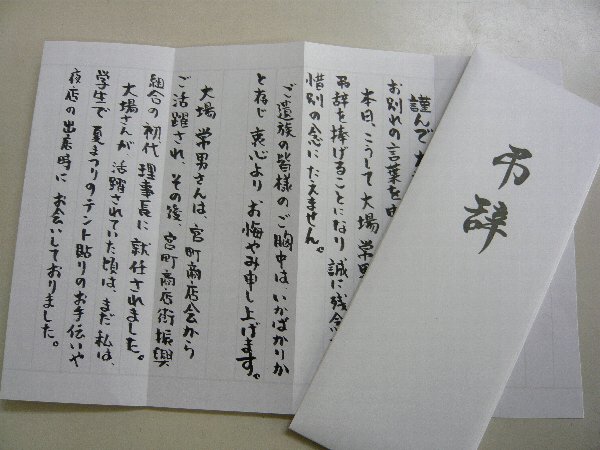 弔辞
謹んで
お別れの言葉を
本日、こうして大場 栄男
弔辞を捧げることになり 誠に残念
惜別の念にたえません。
ご遺族の皆様のご胸中は いかばかりか
と存じ 衷心より お悔やみ申し上げます。
大場 栄男さんは、宮町商店会から
ご活躍され、その後、宮町商店街振興
組合の 初代 理事長に 就任されました。
大場さんが、活躍されていた頃は、まだ私は、
学生で 夏まつりのテント貼りのお手伝いや
夜店の出店時に お会いしておりました。